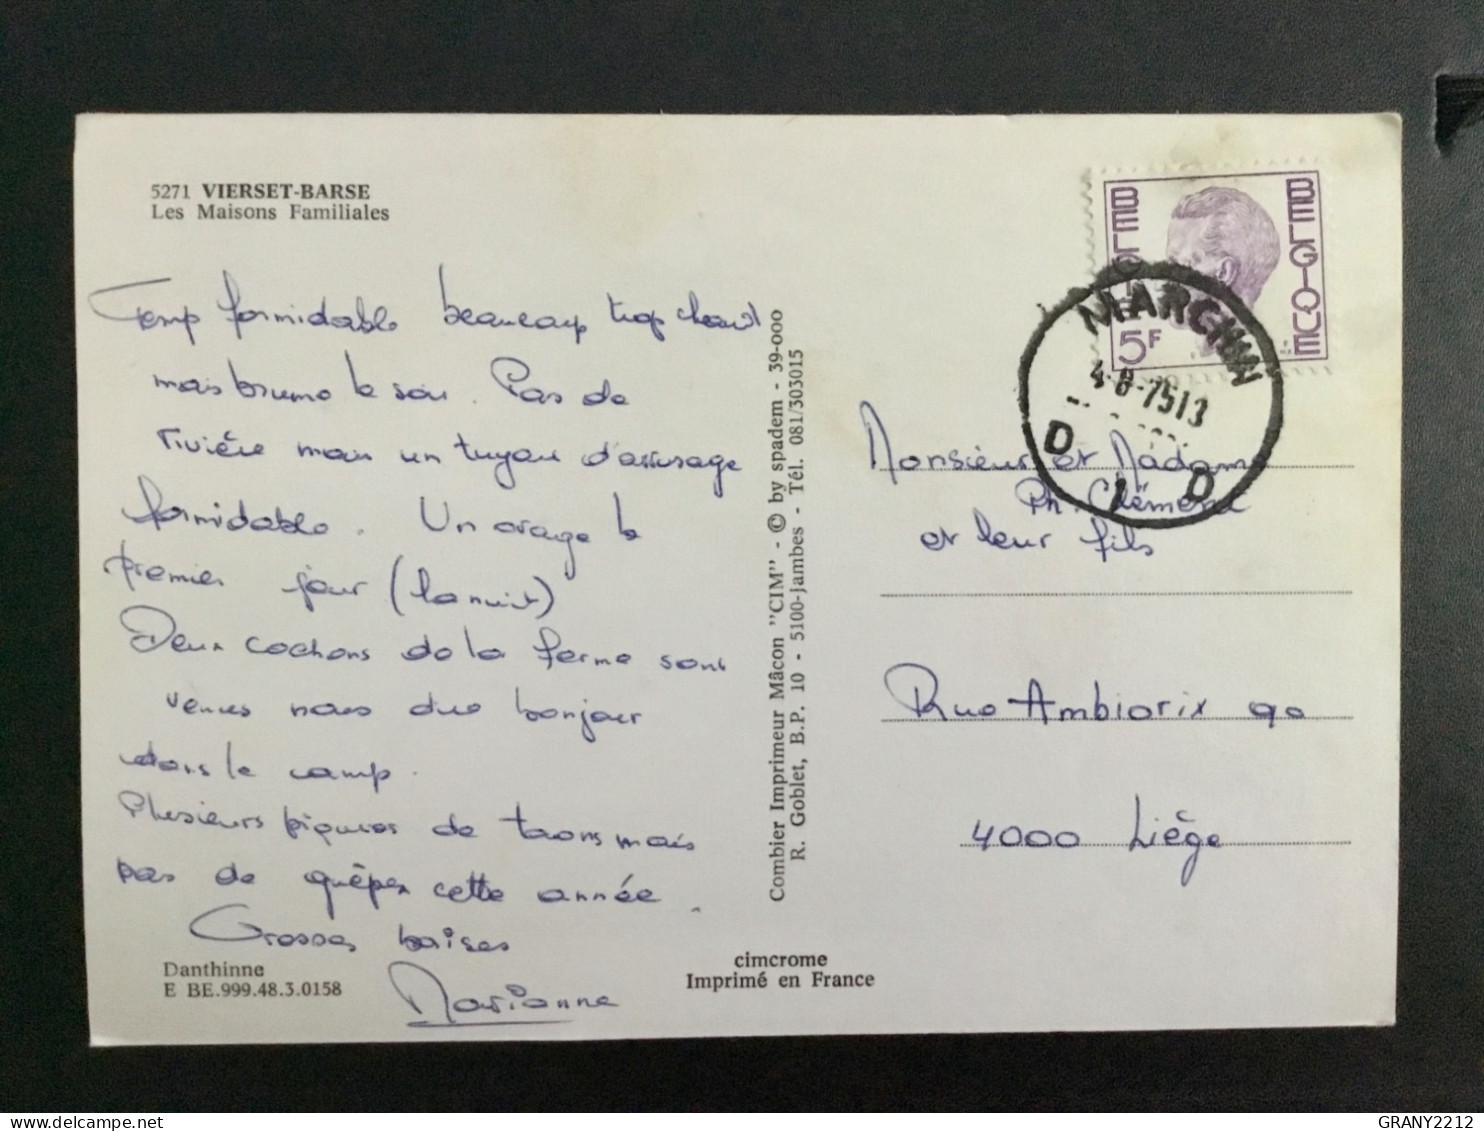 5271 VIERSET-BARSE
Les Maisons Familiales
Temp formidable beaucoup trop chaud
mais brume le soir. Pas de
rivière mais un tuyau d'arrosage
formidable. Un orage le
premier jour (la nuit)
Deux cochons de la ferme sont
venus nous dire bonjour
dans le camp.
Plusieurs piqures de taons mais
pas de guêpes cette année.
Grosses baises
Marianne
Danthinne
E BE.999.48.3.0158
Combier Imprimeur Mâcon "CIM" - © by spadem - 39-000
R. Goblet, B.P. 10 - 5100-Jambes - Tél. 081/303015
cimcrome
Imprimé en France
BELGIQUE
BELGIQUE
5F
MARCHIN
4-8-75 13
D I D
Monsieur et Madame
Ph. Clément
et leur fils
Rue Ambiorix 90
4000 Liège
GRANY2212